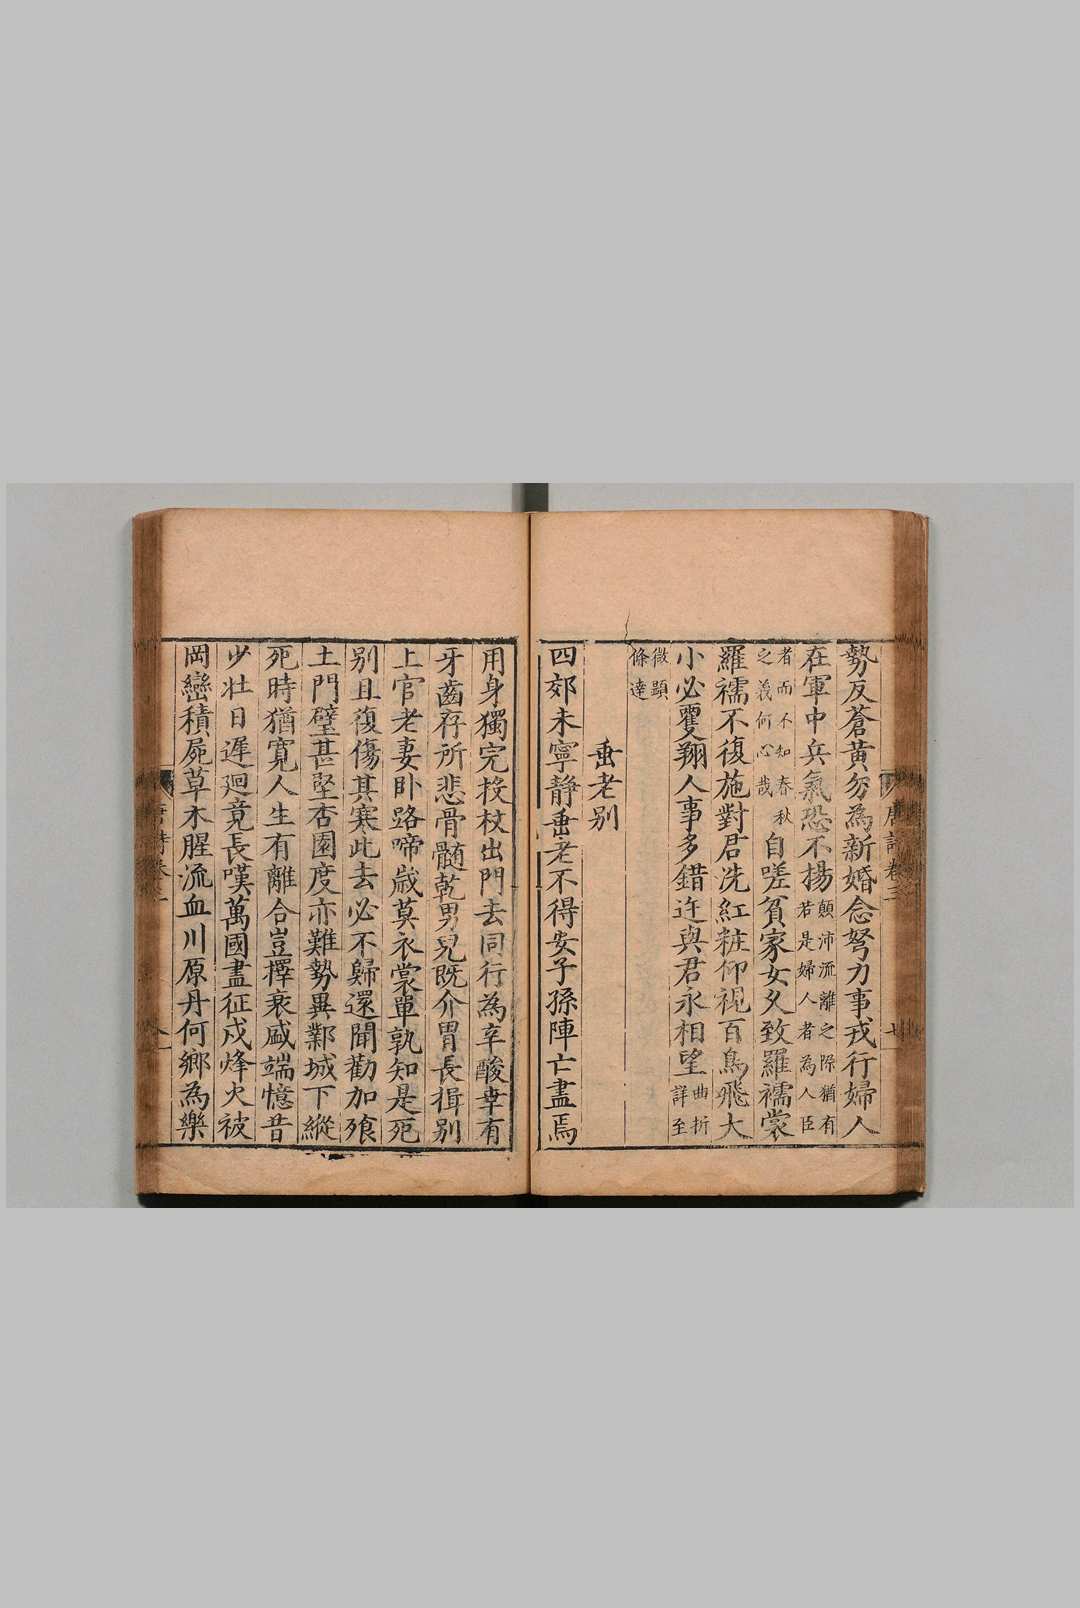 勢反蒼黃勿為新婚念努力事戎行婦人
在軍中兵氣恐不揚顛沛流離之際猶有若是婦人者為人臣
者而不知春秋之義何心哉自嗟貧家女久致羅襦裳
羅襦不復施對君洗紅粧仰視百鳥飛大
小必雙翔人事多錯迕與君永相望曲折詳至
微顯條達
垂老別
四郊未寧靜垂老不得安子孫陣亡盡焉
用身獨完投杖出門去同行為辛酸幸有
牙齒存所悲骨髓乾男兒既介胄長揖別
上官老妻臥路啼歲莫衣裳單孰知是死
別且復傷其寒此去必不歸還聞勸加飱
土門壁甚堅杏園度亦難勢異鄴城下縱
死時猶寬人生有離合豈擇衰盛端憶昔
少壯日遲廻竟長嘆萬國盡征戍烽火被
岡巒積屍草木腥流血川原丹何鄉為樂